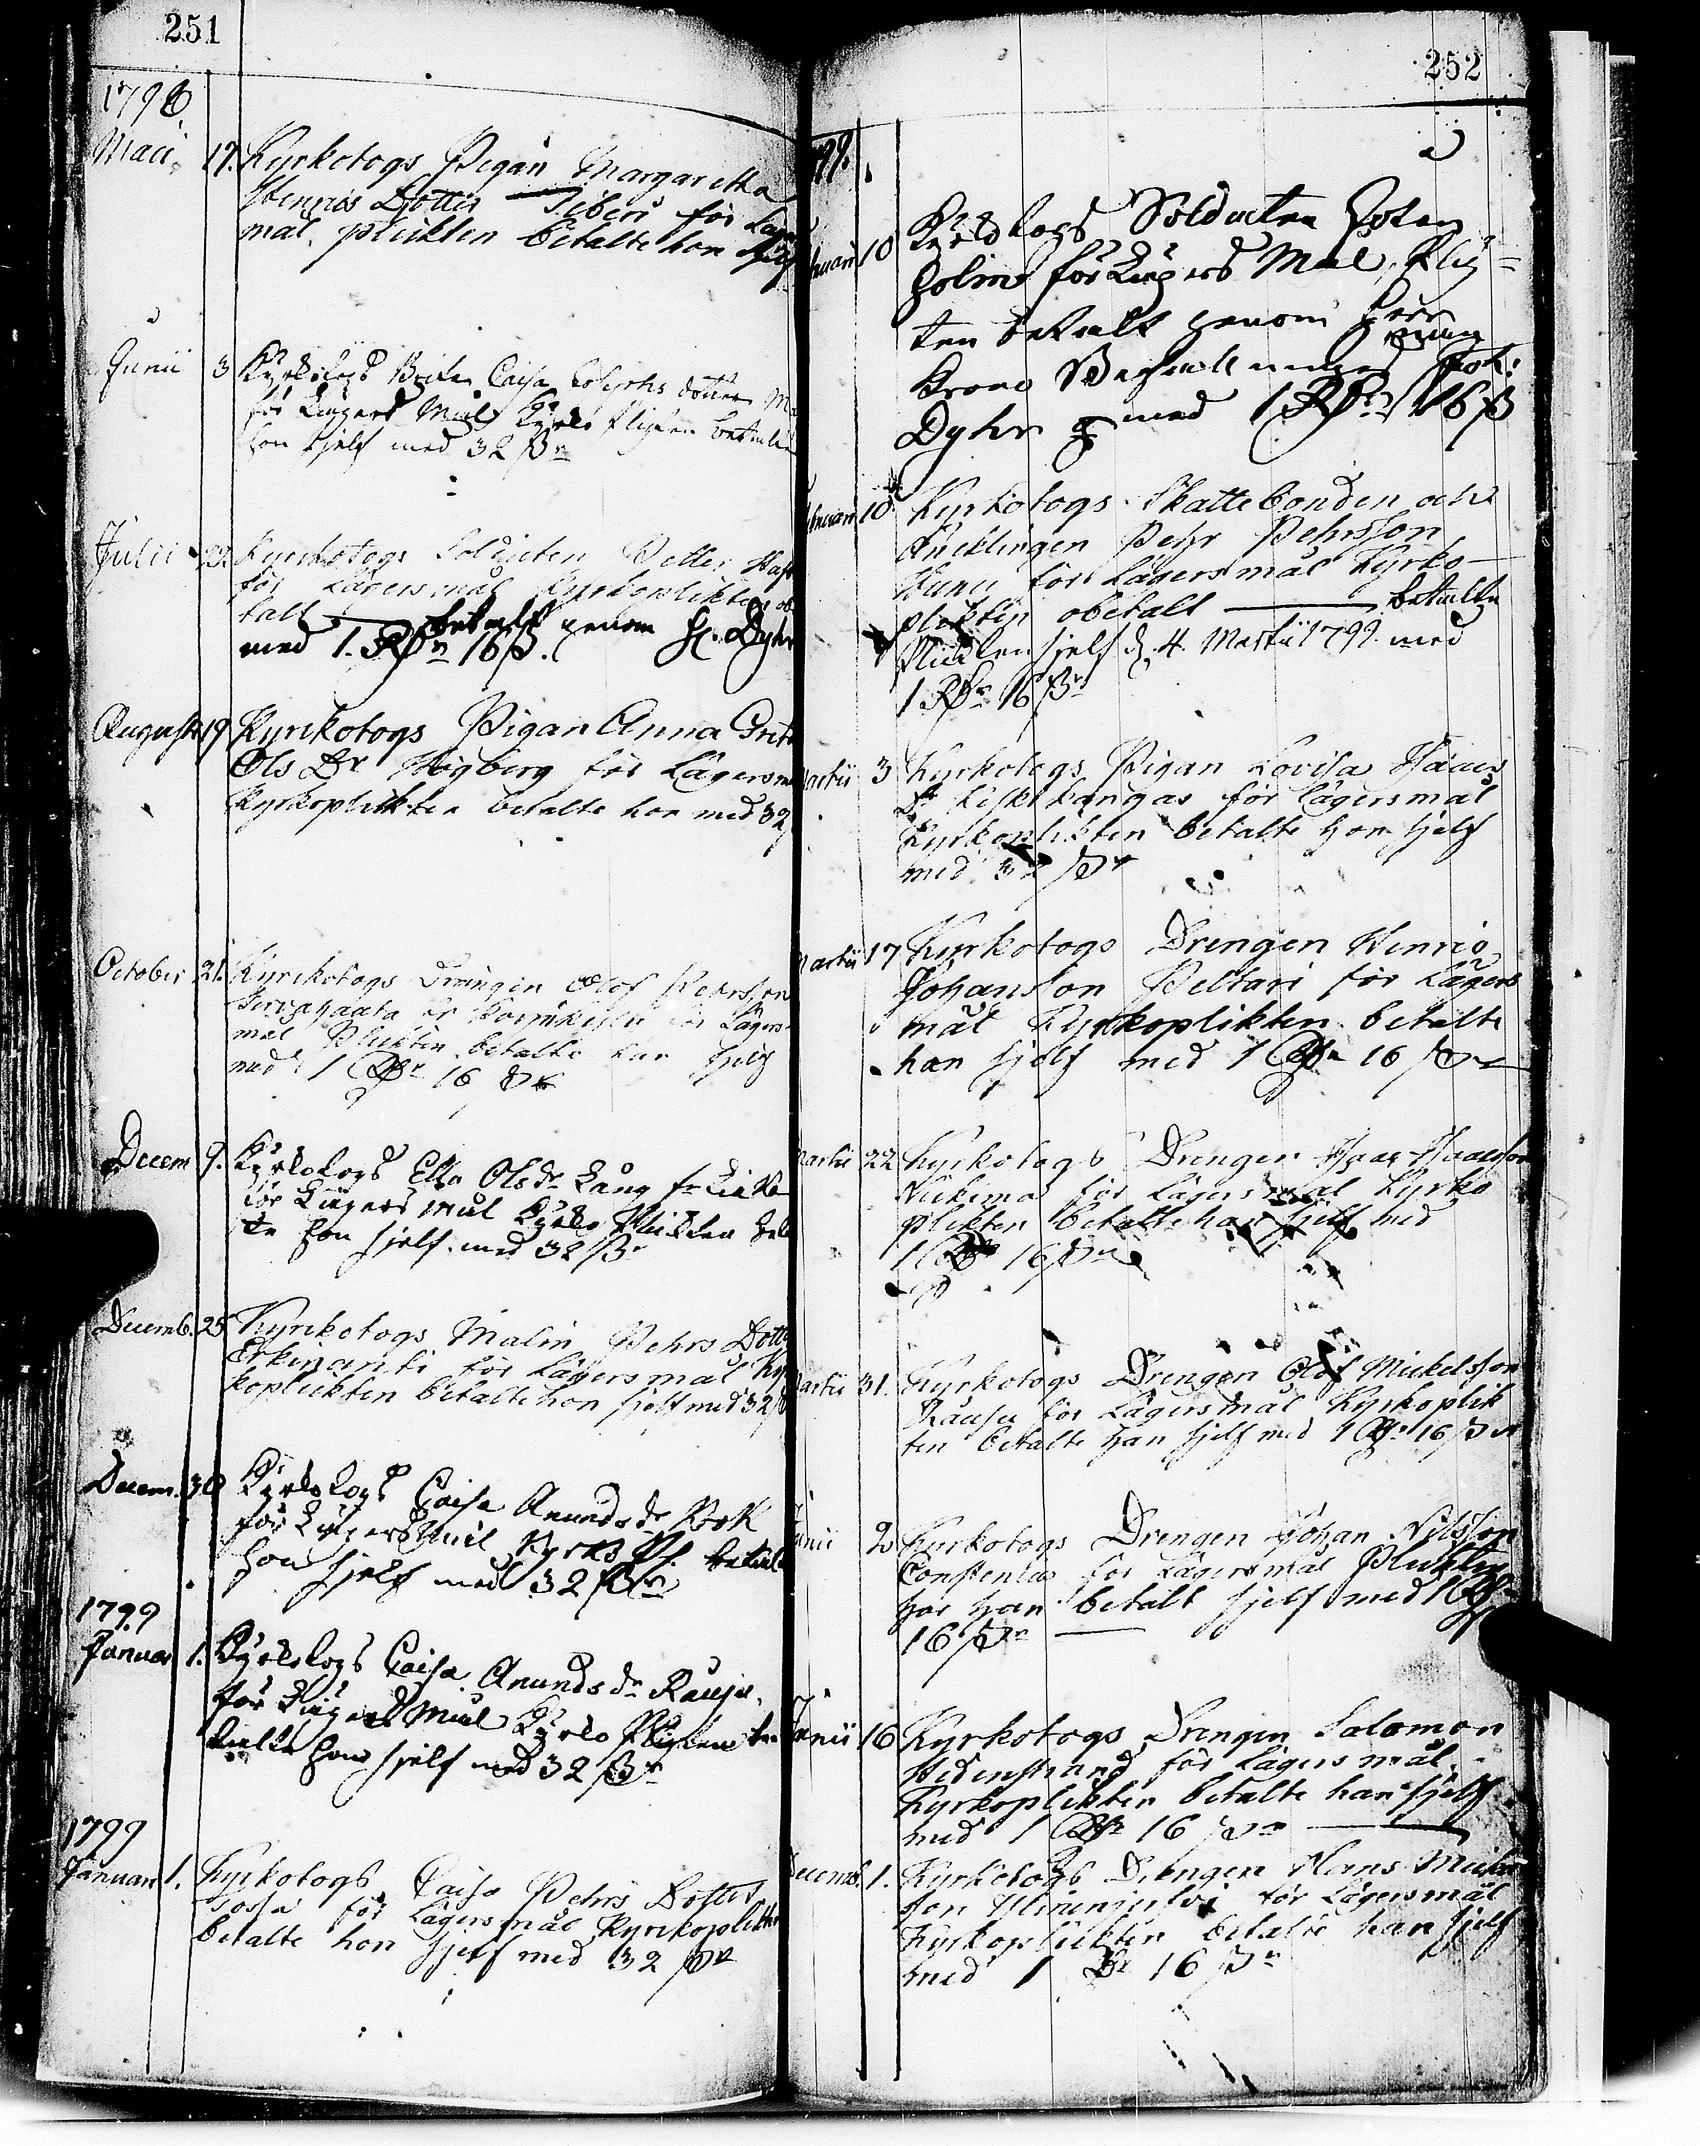 251
1798
Maii 17. Kyrkotogs Pigan Margaretha
Henrics Dotter Siberi för Lägers
mål. plickten betalte hon sjelf
Junii 3 Kyrkotogs Caisa dotter
för Lägers Mål Kyrko Pligten betalte
hon sjelf med 32 ßr
Julii 22. Kyrkotogs Soldaten Petter
för Lägersmål Kyrkoplikten obe
talt betalt genom H. Dyhr
med 1. Rdr 16 ß.
August 19 Kyrkotogs Pigan Anna Greta
Ols Dr Högberg för Lägersmål
Kyrkoplikten betalte hon med 32
October 21. Kyrkotogs Drängen Olof Pehrsson
för Lägers-
mål Plikten betalte han sjelf
med 1 Rdr 16 ßr
Decem 9. Kyrkotogs Ella Olsdr Lang
för Lägers mål Kyrko Plickten betal
te hon sjelf med 32 ßr
Decemb. 25 Kyrkotogs Malin Pehrs Dotter
Erkinantti för Lägersmål Kyr
koplickten betalte hon sjelf med 32 ß
Decem. 30 Kyrkotogs Caisa Anundsdr
för Lägers Mål Kyrko Pl. betalt
hon sjelf med 32 ßr
1799
Januar 1. Kyrkotogs Caisa Anundsdr Rauja
för Lägers Mål Kyrko Pligten be
talte hon sjelf med 32 ßr
1799
Januari 1. Kyrkotogs Caisa Pehrs Dotter
för Lägersmål Kyrkoplikten
betalte hon sjelf med 32 ßr
252
99.
10 Kyrkotogs Soldaten Johan
Holm för Lägers Mål, Plig=
ten betalt genom Herr
Krono Befallningsman Joh:
Dyhr med 1 Rdr 16 ß
10 Kyrkotogs Skattebonden och
Änklingen Pehr Pehrsson
för Lägersmål Kyrko-
plikten obetalt betalte
Plickten sjelf d. 4. Martii 1799. med
1 Rdr 16 ßr
Martii 3 Kyrkotogs Pigan Lovisa Isaacs
Dr för Lägersmål
Kyrkoplikten betalte hon sjelf
med 32 ßr
Martii 17 Kyrkotogs Drengen Henric
Johansson Peltari för Lägers
mål Kyrkoplikten betalte
han sjelf med 1 Rdr 16 ßr
Martii 22 Kyrkotogs Drengen Isaac Isaacsson
Niekima för Lägersmål Kyrko
plikten betalte han sjelf med
1 Rdr 16 ßr
Martii 31. Kyrkotogs Drengen Olof Mickelsson
Rauja för Lägersmål Kyrkoplik
ten betalte han sjelf med 1 Rdr 16 ßr
Junii 2 Kyrkotogs Drengen Johan Nilsson
för Lägersmål Plickten
har han betalt sjelf med 1 Rdr
16 ßr
Junii 16 Kyrkotogs Drengen Salomon
Hedenstrand för Lägersmål.
Kyrkoplikten betalte han sjelf
med 1 Rdr 16 ßr
Decemb. 1. Kyrkotogs Drengen Hans Mickels
son för Lägersmål
Kyrkoplickten betalte han sjelf
med 1 Rdr 16 ßr